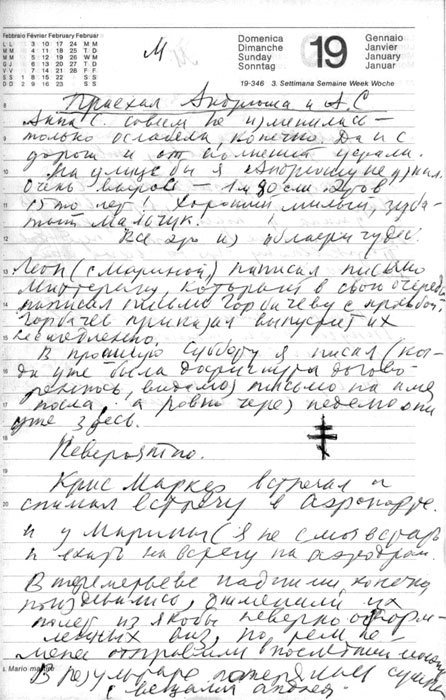 Febbraio Février February Februar
L L 3 10 17 24 M M
M M 4 11 18 25 D D
M W 5 12 19 26 M M
G J 6 13 20 27 D D
V V 7 14 21 28 F F
S S 1 8 15 22 S S
D D 2 9 16 23 S S
М
Domenica
Dimanche
Sunday
Sonntag
19
Gennaio
Janvier
January
Januar
19-346 3. Settimana Semaine Week Woche
Приехал Андрюша и А.С
Анна С. совсем не изменилась –
только ослабела, конечно. Да и с
дороги и от волнений устали.
На улице бы я Андрюшу не узнал.
Очень вырос – 1 м 80 см. Ведь
15 то лет! Хороший милый, зуба-
стый мальчик!
Все это из области чудес!
Леон (с Мариной) написал письмо
Миттерану, который в свою очередь
написал письмо Горбачеву с просьбой.
Горбачев приказал выпустить их
немедленно.
В прошлую субботу я писал (ког-
да уже была достигнута догово-
ренность, видимо) письмо на имя
посла, а ровно через неделю они
уже здесь.
Невероятно.
Крис Маркер встречал и
снимал встречу в аэропорте.
и у Марины (я не смог встать
и ехать на встречу на аэродром.
В Шереметьеве над ними, конечно
поиздевались, отменили их
полет из якобы неверно оформ-
ленных виз, но тем не
менее отправили в последний
В результате потерялись
с вещами
8
9
10
11
12
13
14
15
16
17
18
19
20